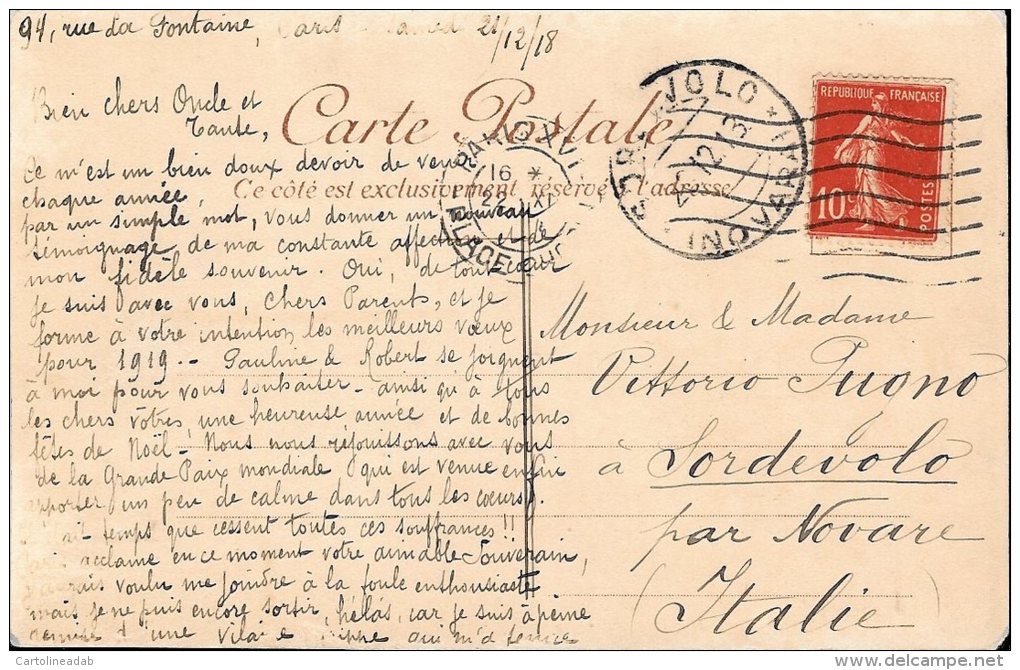 94, rue La Fontaine, Paris Samedi 21/12/18
Bien chers Oncle et
Tante,
Carte Postale
Ce côté est exclusivement réservé à l'adresse
Ce m'est un bien doux devoir de venir
chaque année,
par un simple mot, vous donner un nouveau
témoignage de ma constante affection et de
mon fidèle souvenir. Oui, de tout cœur
je suis avec vous, chers Parents, et je
forme à votre intention les meilleurs vœux
pour 1919 -- Pauline & Robert se joignent
à moi pour vous souhaiter - ainsi qu'à tous
les chers vôtres, une heureuse année et de bonnes
fêtes de Noël - Nous nous réjouissons avec vous
de la Grande Paix mondiale qui est venue enfin
apporter un peu de calme dans tous les cœurs.
temps que cessent toutes ces souffrances!!
acclame en ce moment votre aimable Souverain,
J'aurais voulu me joindre à la foule enthousiaste
mais je ne puis encore sortir, hélas, car je suis à peine
d'une grippe qui m'a
REPUBLIQUE FRANÇAISE
10c
POSTES
PARIS XVI
16 *
22 XII
PLACE
NOVARA
12
Monsieur & Madame
Vittorio Pugno
à Sordevolo
par Novare
(Italie)
© Cartolineadab
delcampe.net